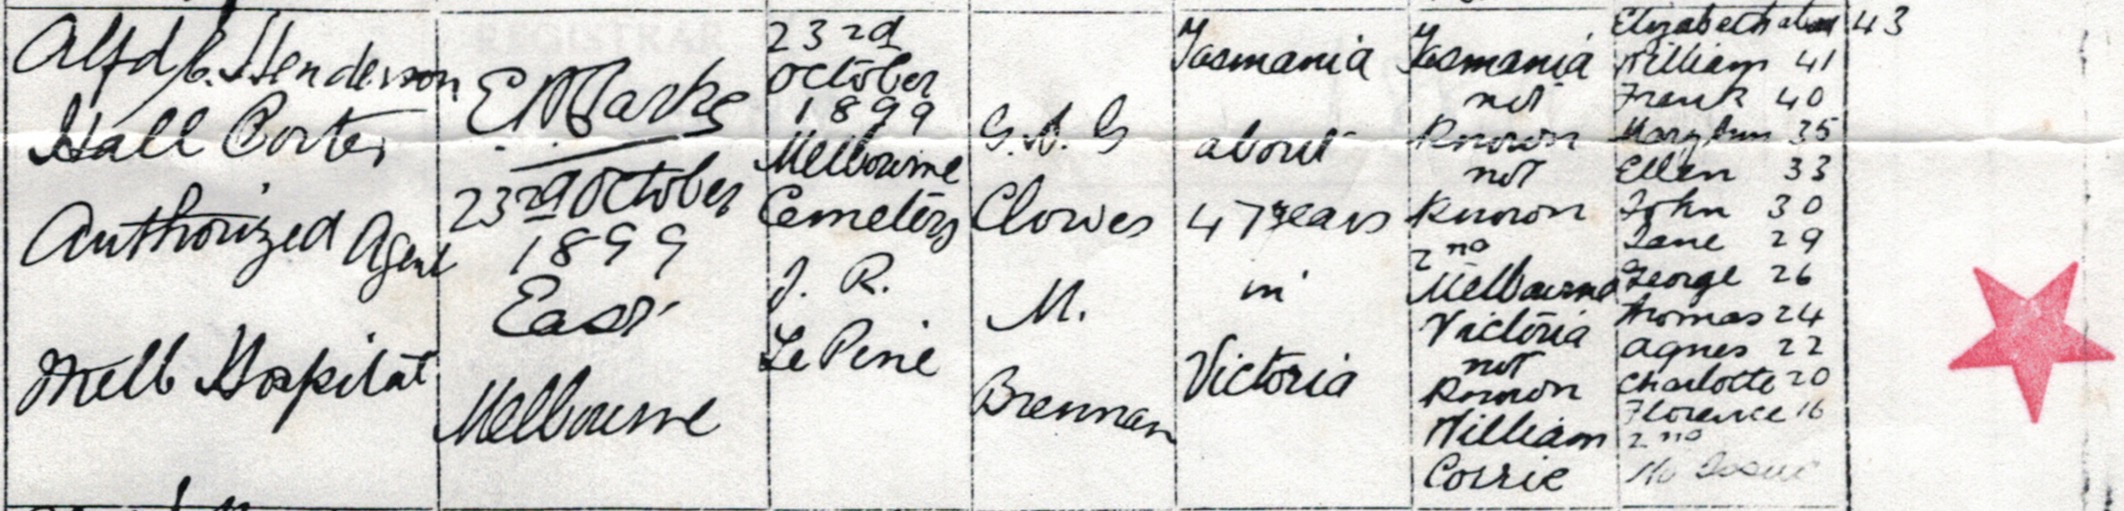 Alfd C. Henderson
Hall Porter
Authorized Agent
Melb Hospital
REGISTRAR
E Marks
23rd October
1899
East
Melbourne
23rd
October
1899
Melbourne
Cemetery
J. R.
Le Pine
G. A. G
Clowes
M.
Brennan
Tasmania
about
47 years
in
Victoria
Tasmania
not
known
not
known
2nd
Melbourne
Victoria
not
known
William
Corrie
Elizabeth 43
William 41
Frank 40
Mary Ann 35
Ellen 33
John 30
Jane 29
George 26
Thomas 24
Agnes 22
Charlotte 20
Florence 16
2nd
No Issue